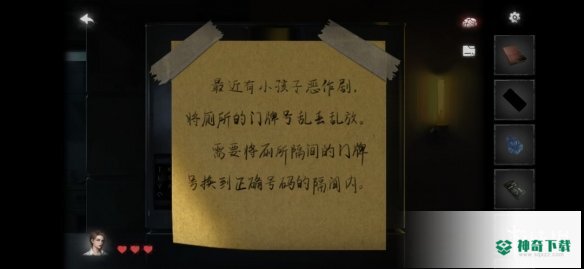 最近有小孩子恶作剧,
将厕所的门牌号乱丢乱放。
需要将厕所隔间的门牌
号换到正确号码的隔间内。
神奇下载